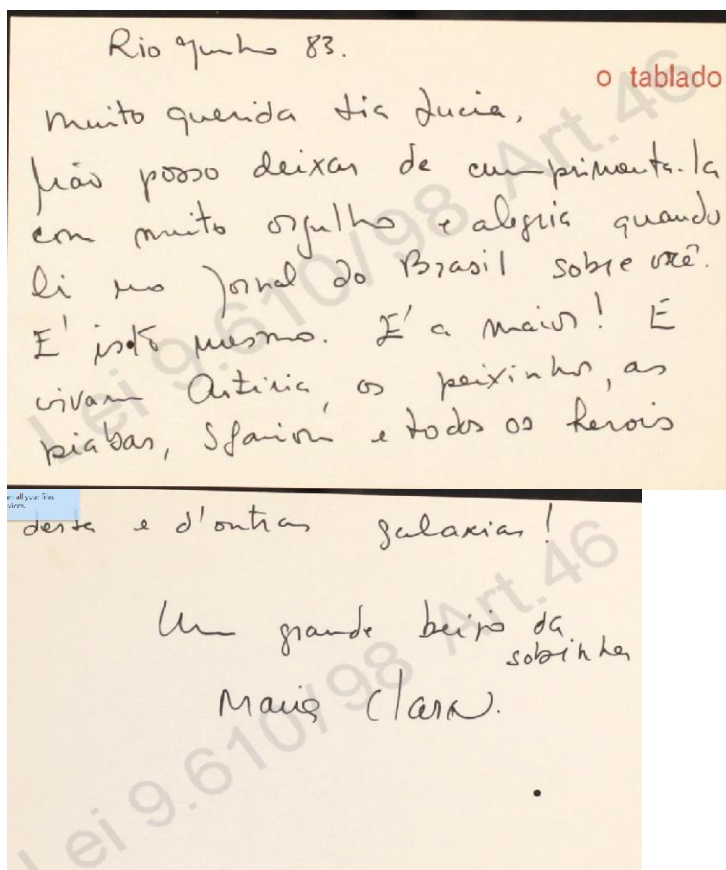 Rio Junho 83.
o tablado
Muito querida tia Lucia,
Não posso deixar de cumprimenta-la
com muito orgulho e alegria quando
li no Jornal do Brasil sobre você.
E' isto mesmo. E' a maior! E
vivam os peixinhos, as
piabas, e todos os herois
desta e d'outras galaxias!
Um grande beijo da
sobrinha
Maria Clara.
Lei 9.610/98 Art.46
Lei 9.610/98 Art.46